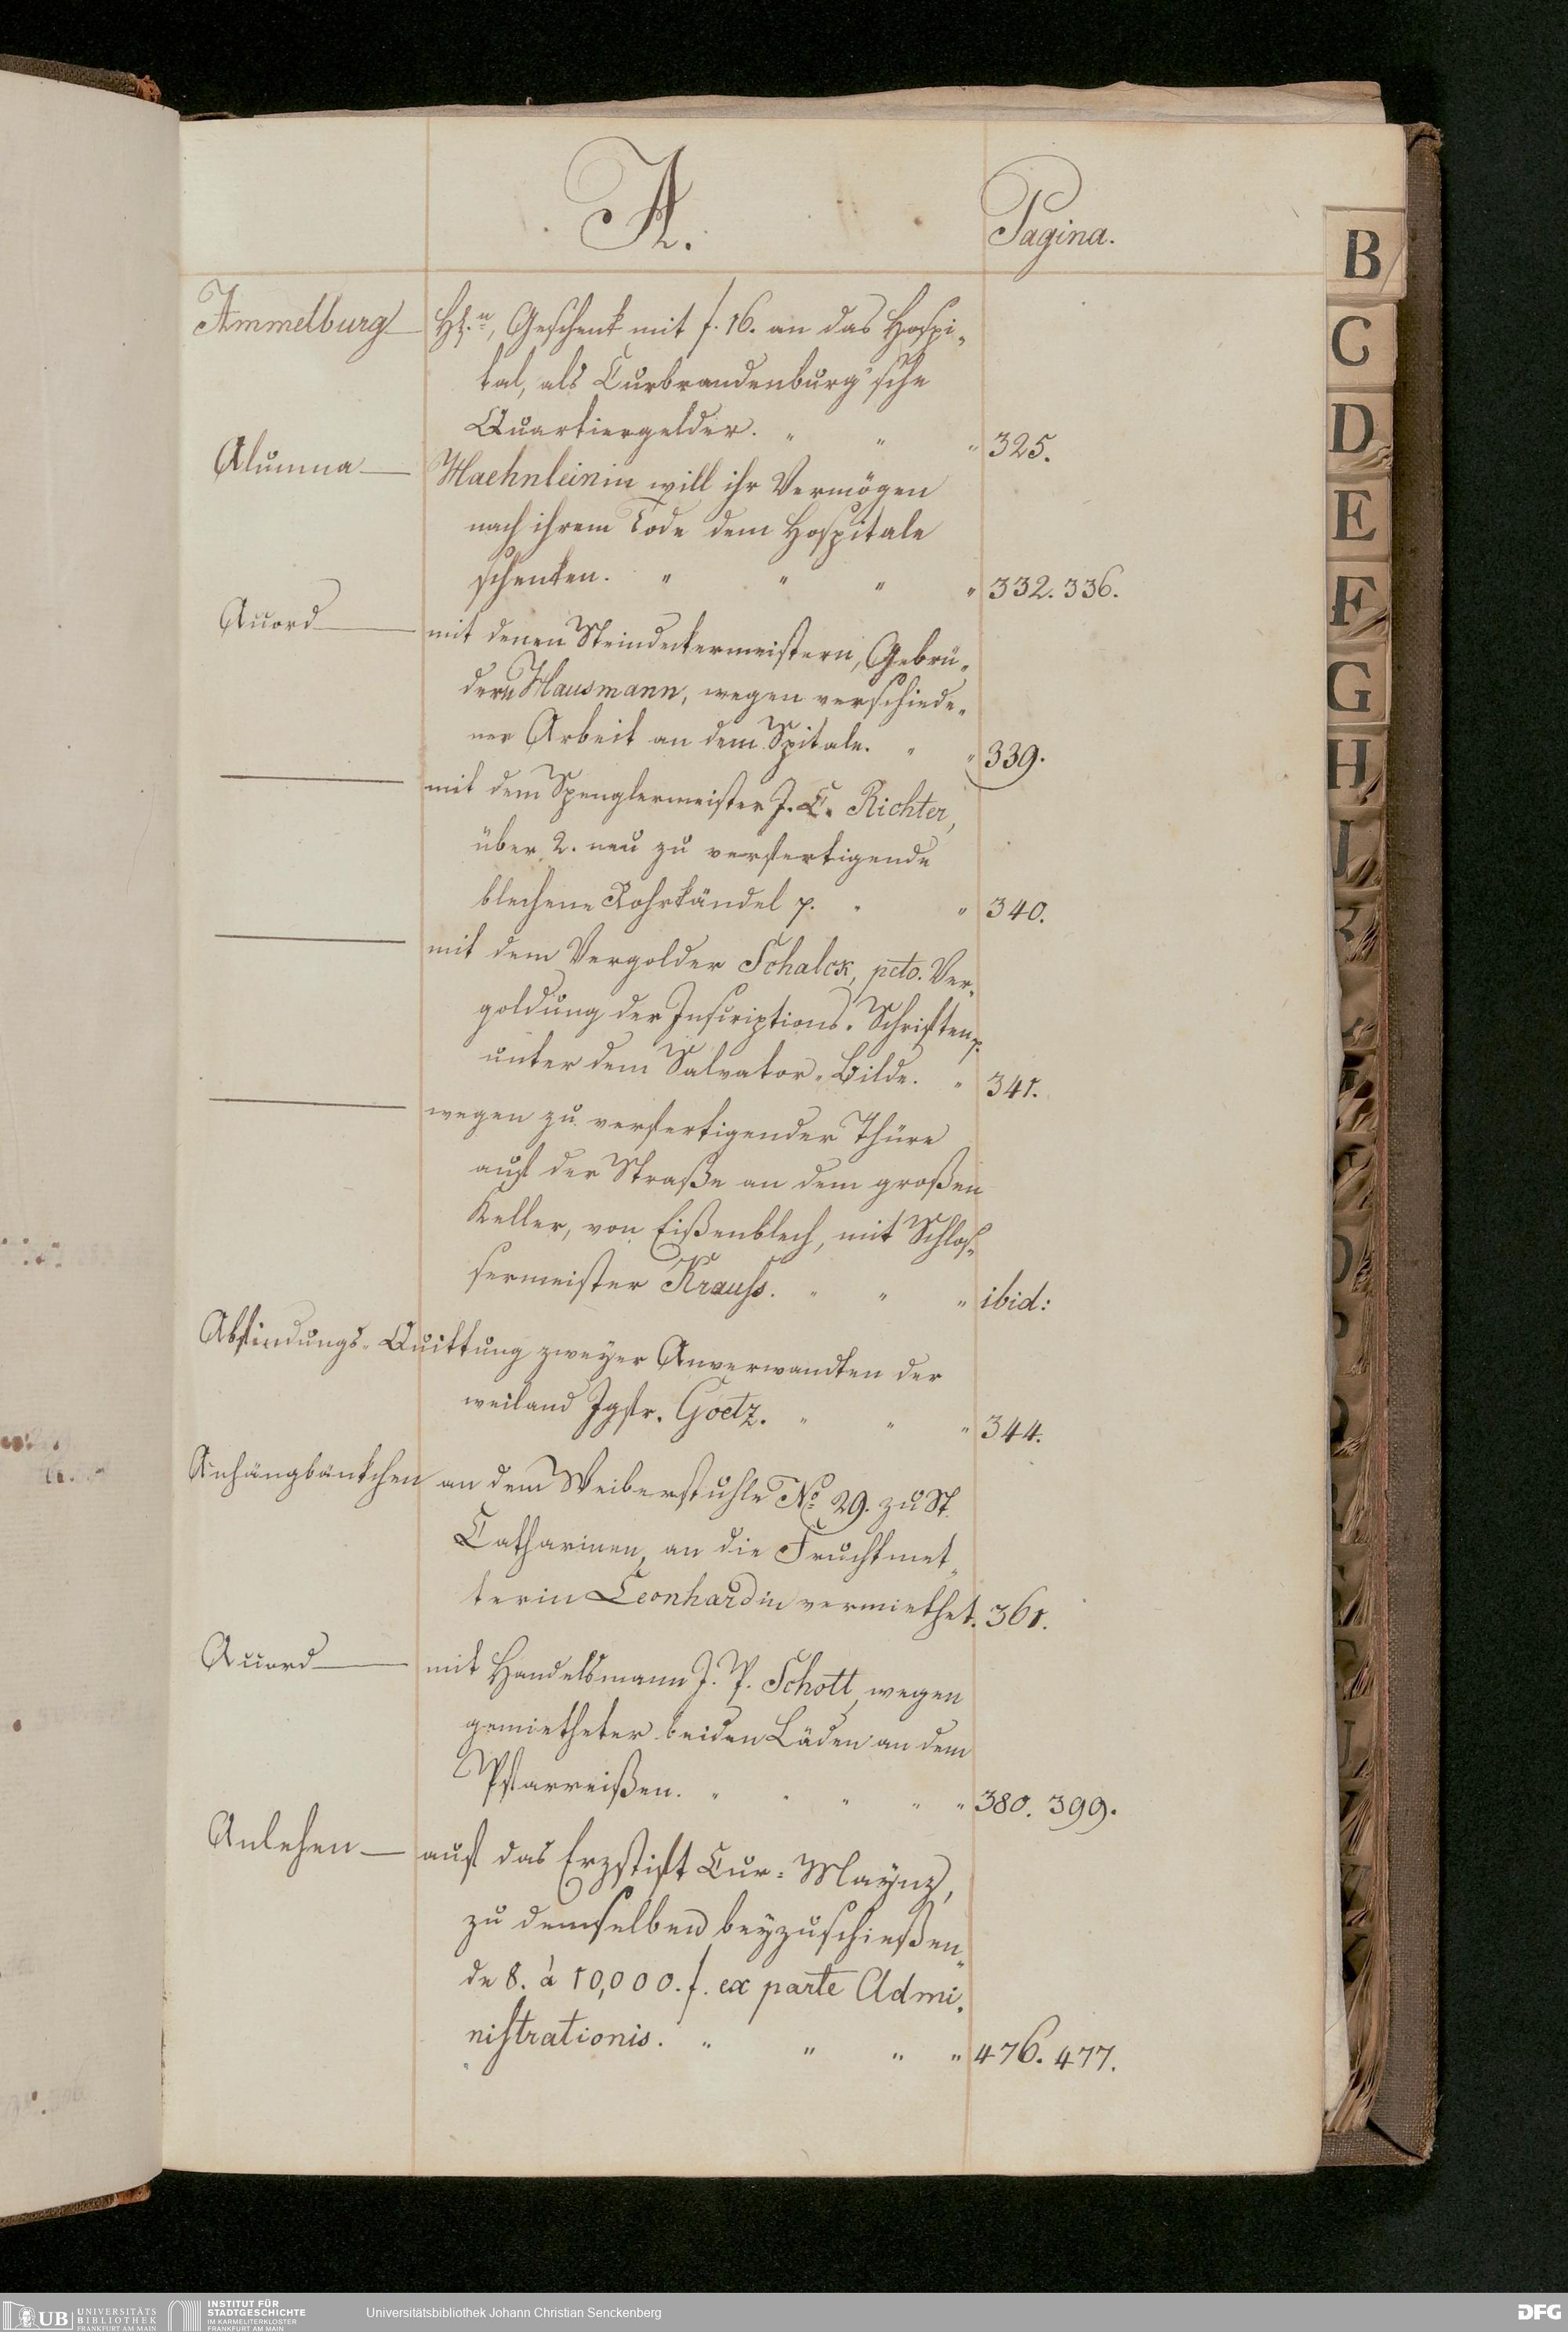 A.
Pagina.
Ammelburg — Hℓ.n, Geschenk mit f. 16. an das Hospi„
tal, als Curbrandenburg'sche
Quartiergelder. " " " 325.
Alumna — Haehnleinin will ihr Vermögen
nach ihrem Tode dem Hospitale
schenken. " " " " 332. 336.
Accord — mit denen Steindeckermeistern, Gebrü„
dern Hausmann, wegen verschiede„
ner Arbeit an dem Spitale. " " 339.
— mit dem Spenglermeister J. C. Richter,
über 2. neu zu verfertigende
blechene Rohrkändel p. " " 340.
— mit dem Vergolder Schalck, pcto. Ver„
goldung der Inscriptions-Schriften p.
unter dem Salvator-Bilde. " 341.
— wegen zu verfertigender Thüre
auf der Straße an dem großen
Keller, von Eißenblech, mit Schlos„
sermeister Krauss. " " " ibid:
Abfindungs-Quittung zweyer Anverwandten der
weiland Jgfr. Goetz. " " " 344.
Anhängbänkchen an dem Weiberstuhle No 29. zu St.
Catharinen, an die Fruchtmet„
terin Leonhardin vermiethet. 361.
Accord — mit Handelsmann J. P. Schott, wegen
gemietheter beiden Läden an dem
Pfarreißen. " " " " " 380. 399.
Anlehen — auf das Erzstift Cur-Maynz,
zu demselben beyzuschießen„
de 8. à 10,000. f. ex parte Admi„
nistrationis. " " " " 476. 477.
B
C
D
E
F
G
H
J
UB
UNIVERSITÄTS
BIBLIOTHEK
FRANKFURT AM MAIN
INSTITUT FÜR
STADTGESCHICHTE
IM KARMELITERKLOSTER
FRANKFURT AM MAIN
Universitätsbibliothek Johann Christian Senckenberg
DFG